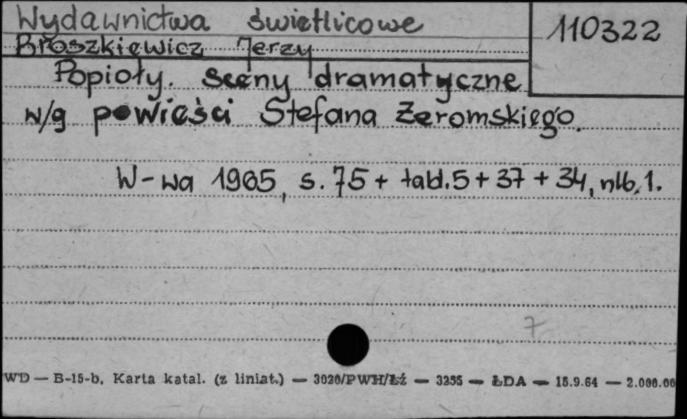 Wydawnictwa świetlicowe
110322
Broszkiewicz Jerzy
Popioły. Sceny dramatyczne
w/g powieści Stefana Żeromskiego.
W-wa 1965, s. 75 + tabl. 5 + 37 + 34, nlb. 1.
7
WD — B-15-b. Karta katal. (z liniat.) — 3020/PWH/Łź — 3255 — ŁDA — 15.9.64 — 2.000.00